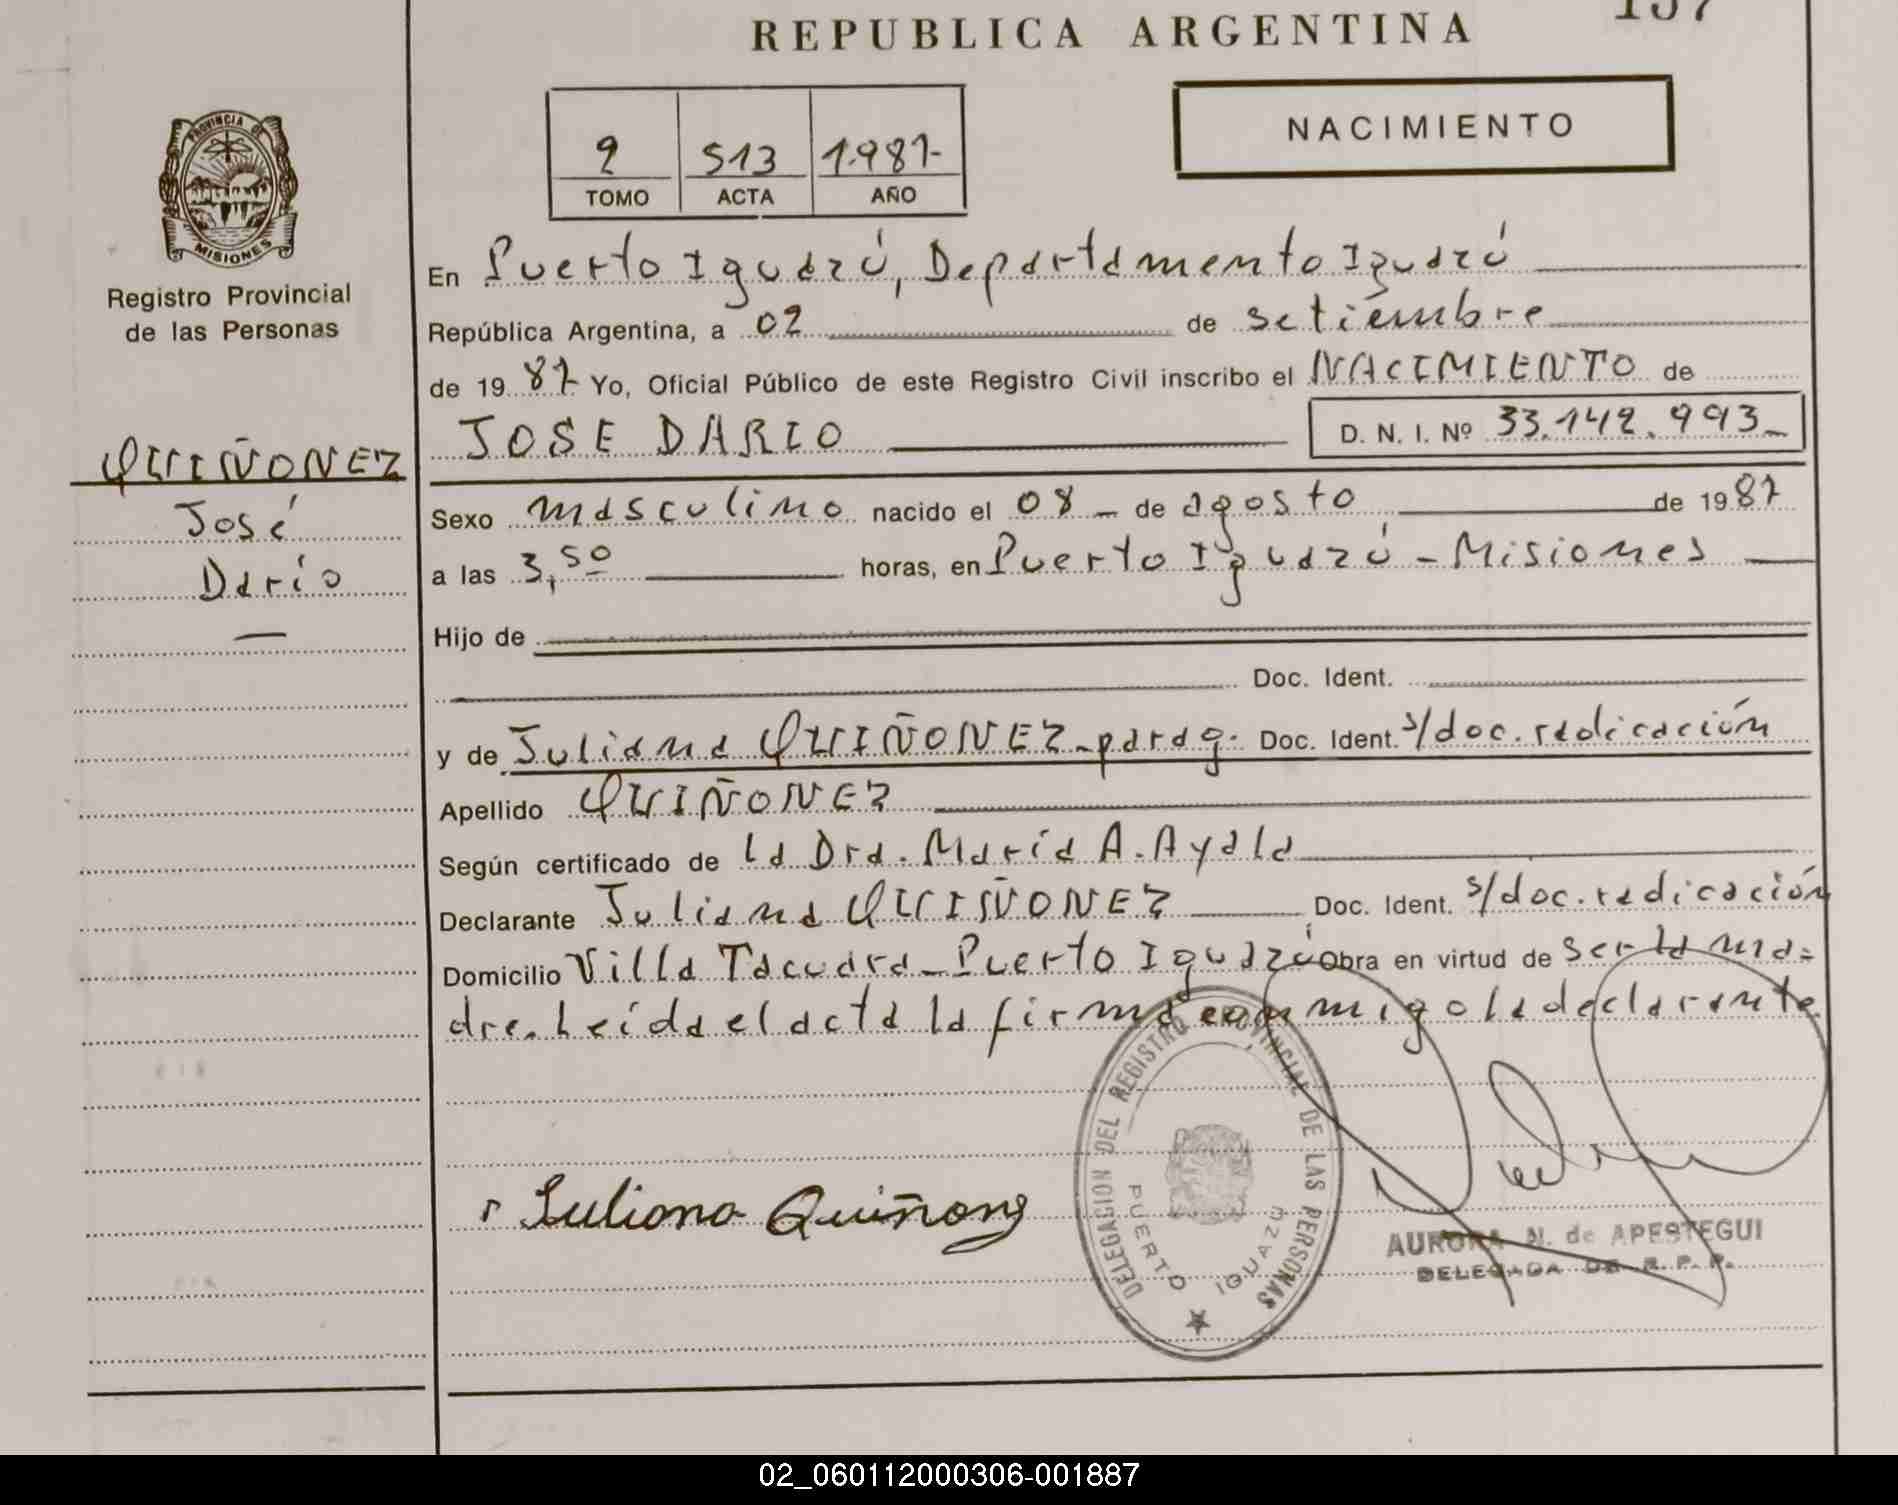 REPUBLICA ARGENTINA
NACIMIENTO
2 513 1.987-
TOMO ACTA AÑO
PROVINCIA DE
MISIONES
Registro Provincial
de las Personas
QUIÑONEZ
José
Darío
En Puerto Iguazú, Departamento Iguazú
República Argentina, a 02 de setiembre
de 1987 Yo, Oficial Público de este Registro Civil inscribo el NACIMIENTO de
JOSE DARIO D. N. I. Nº 33.142.993_
Sexo masculino nacido el 08 _ de agosto de 1987
a las 3,50 horas, en Puerto Iguazú - Misiones
Hijo de
Doc. Ident.
y de Juliana QUIÑONEZ - parag. Doc. Ident. s/doc. radicación
Apellido QUIÑONEZ
Según certificado de la Dra. María A. Ayala
Declarante Juliana QUIÑONEZ Doc. Ident. s/doc. radicación
Domicilio Villa Tacuara - Puerto Iguazú Obra en virtud de ser la ma=
dre. Leída el acta la firma conmigo la declarante.
Juliana Quiñonez
DELEGACION DEL REGISTRO PROVINCIAL DE LAS PERSONAS
PUERTO IGUAZU
AURORA N. de APESTEGUI
DELEGADA DE R. P. P.
02_060112000306-001887